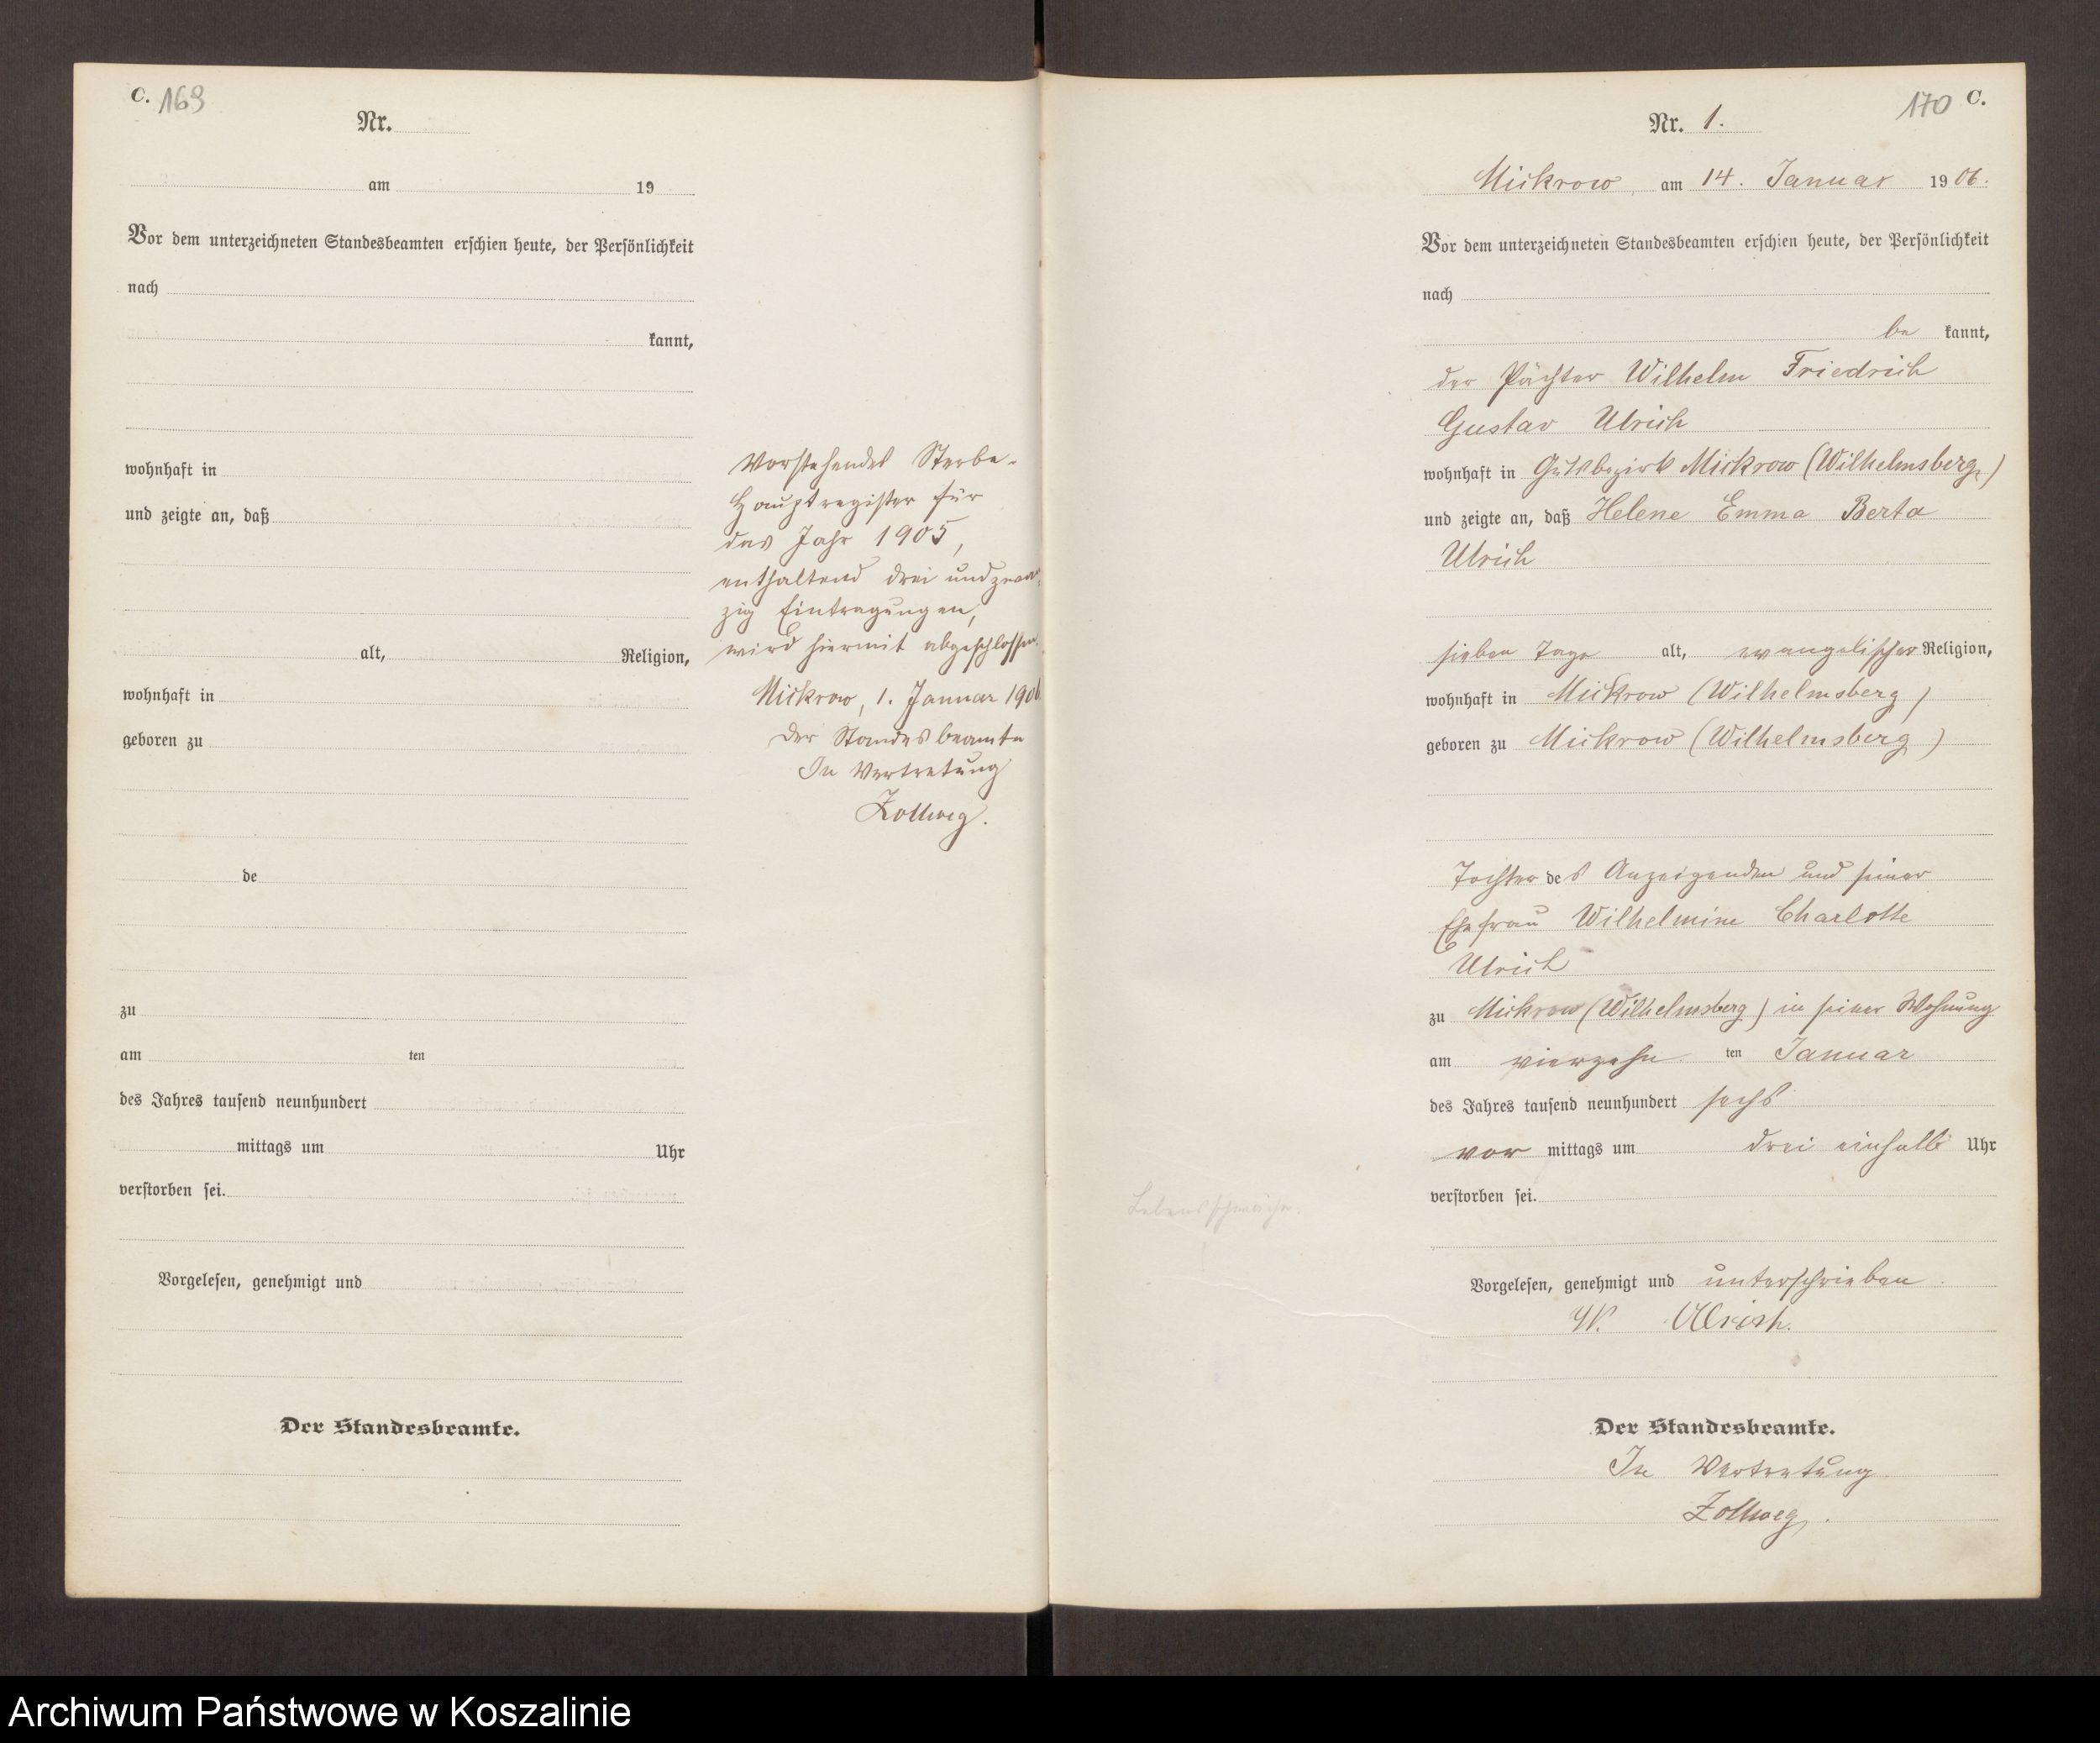 C. 169
Nr.
am 19
Vor dem unterzeichneten Standesbeamten erschien heute, der Persönlichkeit
nach
kannt,
wohnhaft in
und zeigte an, daß
alt, Religion,
wohnhaft in
geboren zu
de
zu
am ten
des Jahres tausend neunhundert
mittags um Uhr
verstorben sei.
Vorgelesen, genehmigt und
Der Standesbeamte.
Vorstehendes Sterbe-
Hauptregister für
das Jahr 1905,
enthaltend drei und zwan-
zig Eintragungen,
wird hiermit abgeschlossen.
Mickrow, 1. Januar 1906
Der Standesbeamte
In Vertretung
Zollweg.
170 C.
Nr. 1.
Mickrow, am 14. Januar 1906.
Vor dem unterzeichneten Standesbeamten erschien heute, der Persönlichkeit
nach
be kannt,
der Pächter Wilhelm Friedrich
Gustav Ulrich
wohnhaft in Gutsbezirk Mickrow (Wilhelmsberg)
und zeigte an, daß Helene Emma Berta
Ulrich
sieben Tage alt, evangelischer Religion,
wohnhaft in Mickrow (Wilhelmsberg)
geboren zu Mickrow (Wilhelmsberg)
Tochter des Anzeigenden und seiner
Ehefrau Wilhelmine Charlotte
Ulrich
zu Mickrow (Wilhelmsberg) in seiner Wohnung
am vierzehn ten Januar
des Jahres tausend neunhundert sechs
vor mittags um drei einhalb Uhr
verstorben sei.
Lebensschwäche.
Vorgelesen, genehmigt und unterschrieben
W. Ulrich.
Der Standesbeamte.
In Vertretung
Zollweg.
Archiwum Państwowe w Koszalinie